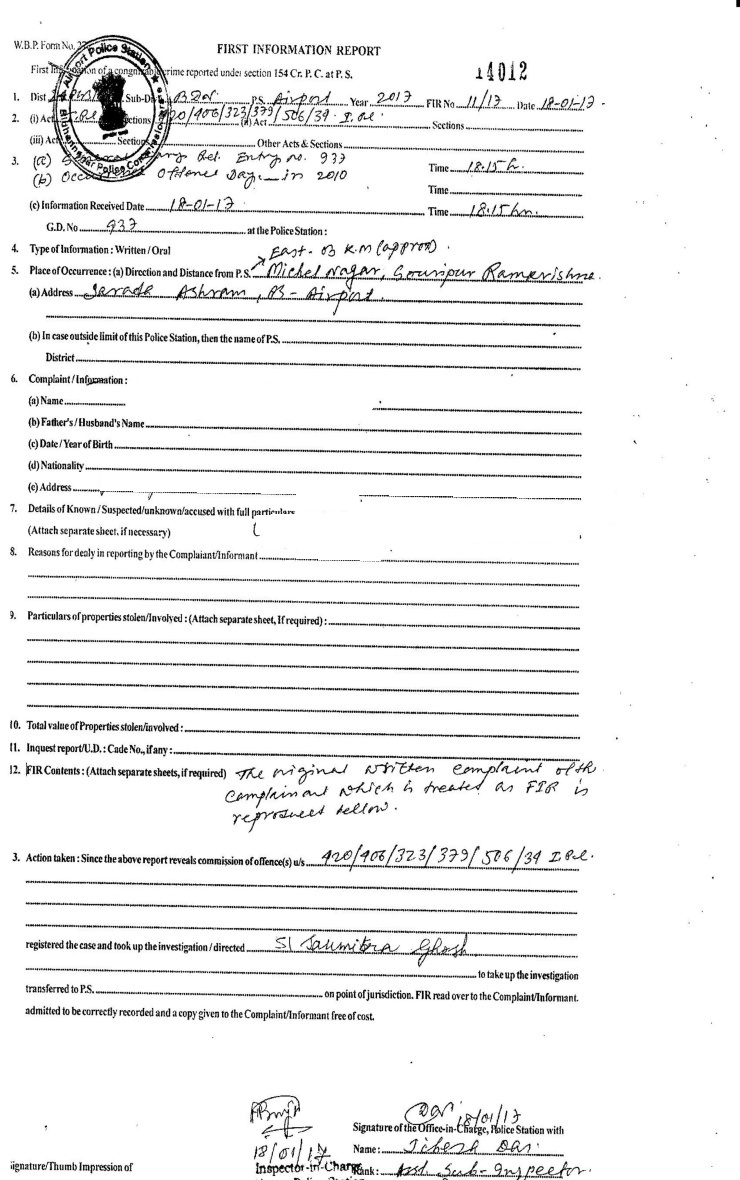 W.B.P. Form No. 
FIRST INFORMATION REPORT
First of a crime reported under section 154 Cr. P. C. at P. S.
14012
Airport Police Station
Bidhannagar Police Commissionerate
1. Dist Sub-Div P.S. Airport Year 2017 FIR No 11/17 Date 18-01-17.
2. (i) Act Sections 420/406/323/379/506/34 (ii) Act Sections
(iii) Act Sections Other Acts & Sections
3. (a) Entry no. 937 Time 18.15 h.
(b) Offence Day in 2010 Time
(c) Information Received Date 18-01-17 Time 18.15 hrs.
G.D. No 937 at the Police Station :
4. Type of Information : Written / Oral
East. 03 K.M (approx).
5. Place of Occurrence : (a) Direction and Distance from P.S. Michel Nagar, Gouripur Ramkrishna
(a) Address Sarada Ashram, PS - Airport.
(b) In case outside limit of this Police Station, then the name of P.S.
District
6. Complaint / Information :
(a) Name
(b) Father's / Husband's Name
(c) Date / Year of Birth
(d) Nationality
(e) Address
7. Details of Known / Suspected/unknown/accused with full particulars
(Attach separate sheet, if necessary)
8. Reasons for dealy in reporting by the Complaiant/Informant
9. Particulars of properties stolen/Involved : (Attach separate sheet, If required) :
10. Total value of Properties stolen/involved :
11. Inquest report/U.D. : Cade No., if any :
12. FIR Contents : (Attach separate sheets, if required) The original written complaint of the
complainant which is treated as FIR is
reproduced bellow.
3. Action taken : Since the above report reveals commission of offence(s) u/s 420/406/323/379/506/34
registered the case and took up the investigation / directed SI Saumitra Ghosh
to take up the investigation
transferred to P.S. on point of jurisdiction. FIR read over to the Complaint/Informant.
admitted to be correctly recorded and a copy given to the Complaint/Informant free of cost.
18/01/17
Signature of the Office-in-Charge, Police Station with
18/01/17
Name : Das.
ignature/Thumb Impression of
Inspector-in-Charge
Rank : Asst Sub-Inspector.